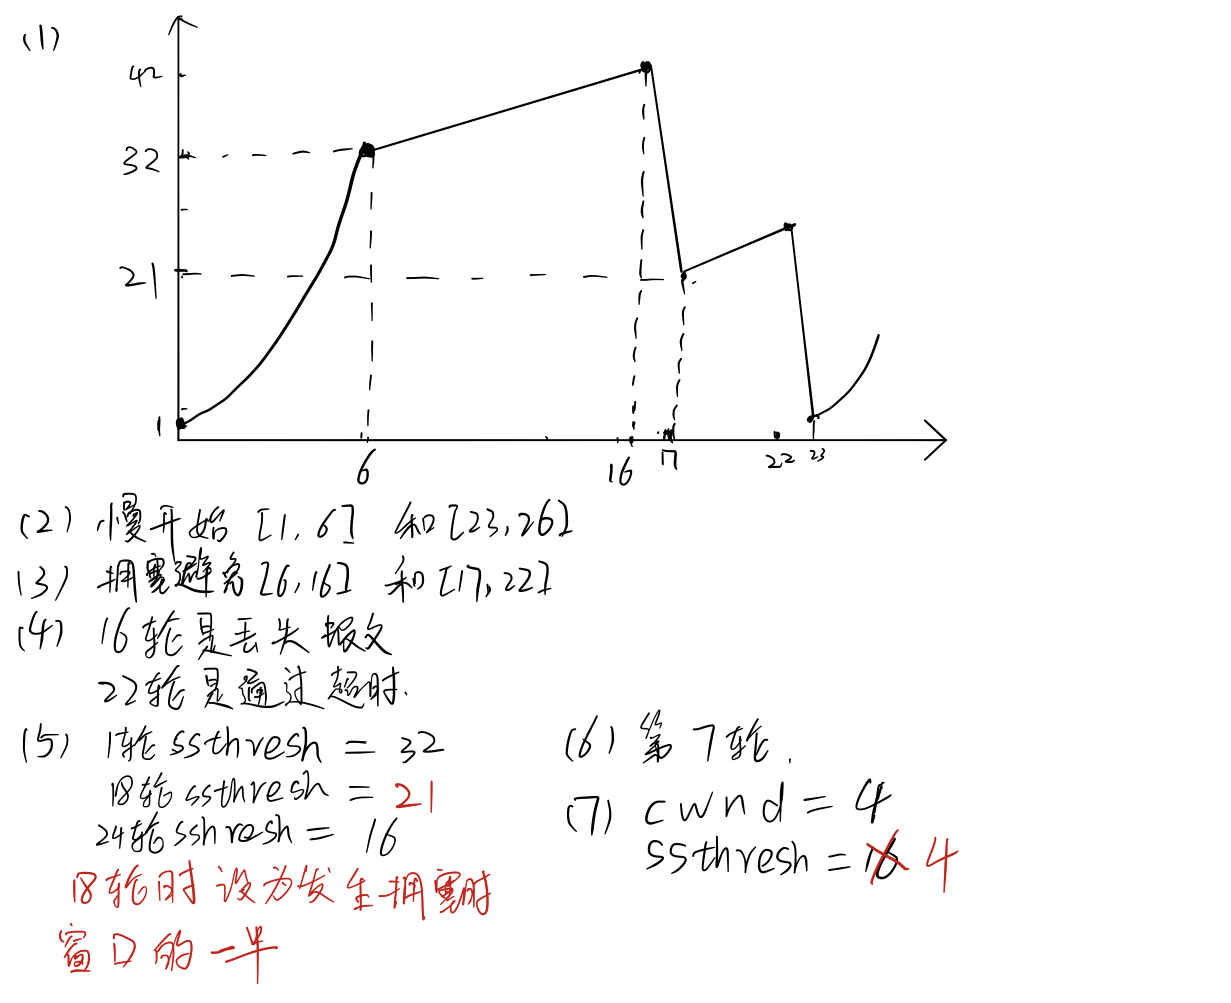 (1)
42
32
21
1
6
16
17
22
23
(2) 慢开始 [1, 6] 和 [23,26]
(3) 拥塞避免 [6,16] 和 [17,22]
(4) 16轮是丢失报文
22轮是通过超时.
(5) 1轮 ssthresh = 32
18轮 ssthresh = 21
24轮 sshresh = 16
18轮时设为发生拥塞时
窗口的一半
(6) 第7轮.
(7) cwnd = 4
ssthresh = 16 4